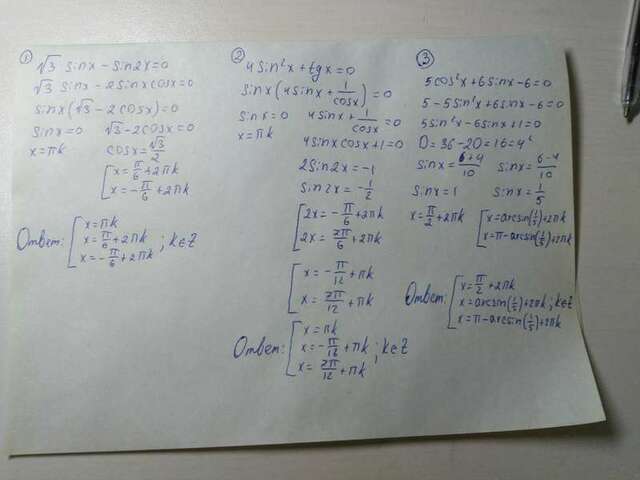 ①
√3 sinx - sin2x = 0
√3 sinx - 2sinx cosx = 0
sinx(√3 - 2cosx) = 0
sinx = 0 √3 - 2cosx = 0
x = πk cosx = √3/2
[x = π/6 + 2πk
x = -π/6 + 2πk
Ответ: [x = πk
x = π/6 + 2πk ; k∈Z
x = -π/6 + 2πk
②
4sin²x + tgx = 0
sinx(4sinx + 1/cosx) = 0
sinx = 0 4sinx + 1/cosx = 0
x = πk
4sinxcosx + 1 = 0
2sin2x = -1
sin2x = -1/2
[2x = -π/6 + 2πk
2x = 7π/6 + 2πk
[x = -π/12 + πk
x = 7π/12 + πk
Ответ: [x = πk
x = -π/12 + πk ; k∈Z
x = 7π/12 + πk
③
5cos²x + 6sinx - 6 = 0
5 - 5sin²x + 6sinx - 6 = 0
5sin²x - 6sinx + 1 = 0
D = 36 - 20 = 16 = 4²
sinx = 6+4/10 sinx = 6-4/10
sinx = 1 sinx = 1/5
x = π/2 + 2πk [x = arcsin(1/5) + 2πk
x = π - arcsin(1/5) + 2πk
Ответ: [x = π/2 + 2πk
x = arcsin(1/5) + 2πk ; k∈Z
x = π - arcsin(1/5) + 2πk